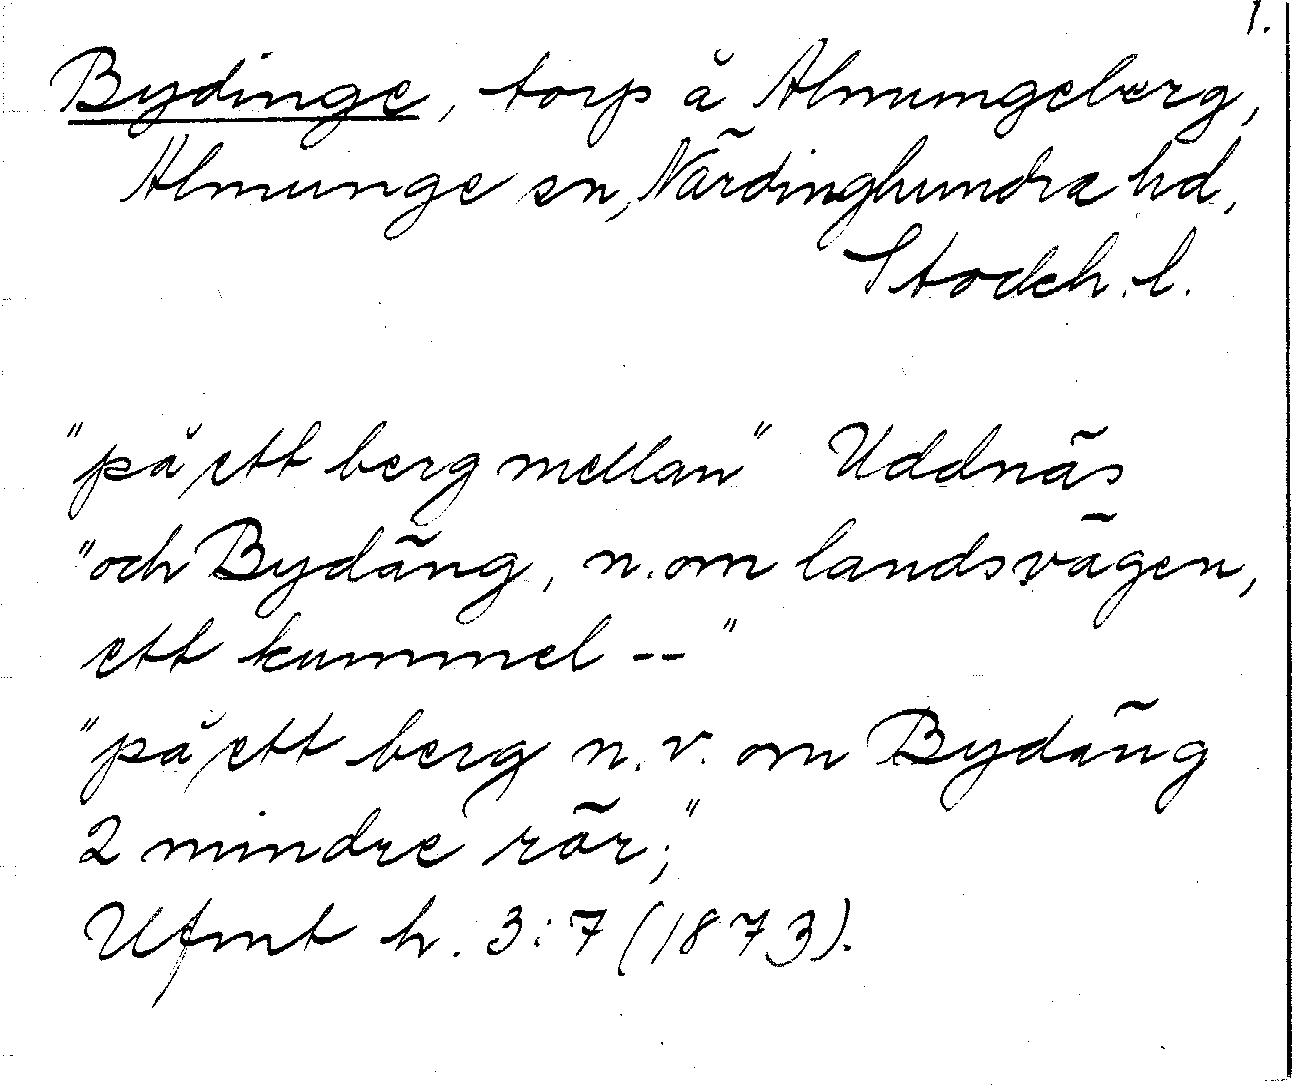 1.
Bydinge, torp å Almungeberg,
Almunge sn, Närdinghundra hd,
Stockh. l.
"på ett berg mellan" Uddnäs
"och Bydäng, n. om landsvägen,
ett kummel --"
"på ett berg n.v. om Bydäng
2 mindre rör;"
Ufmt h. 3:7 (1873).